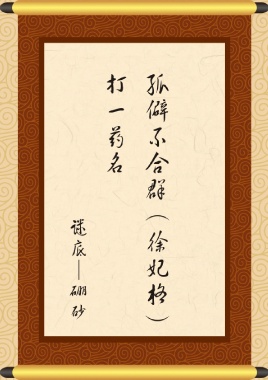 孤僻不合群（徐妃格）
打一药名
谜底——硼砂